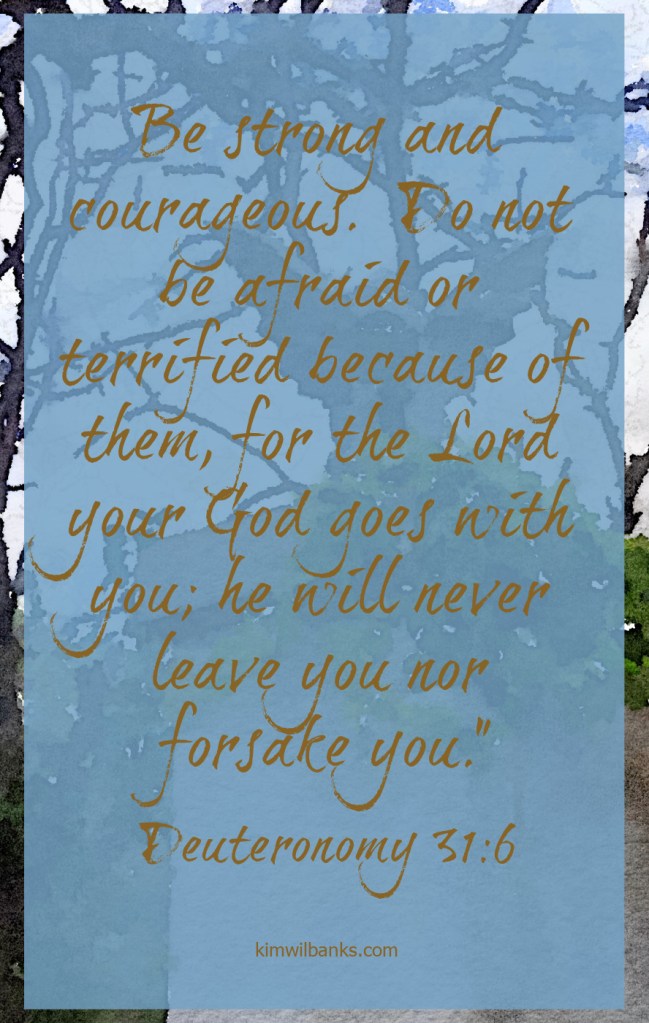 Be strong and
courageous. Do not
be afraid or
terrified because of
them, for the Lord
your God goes with
you; he will never
leave you nor
forsake you."
Deuteronomy 31:6
kimwilbanks.com